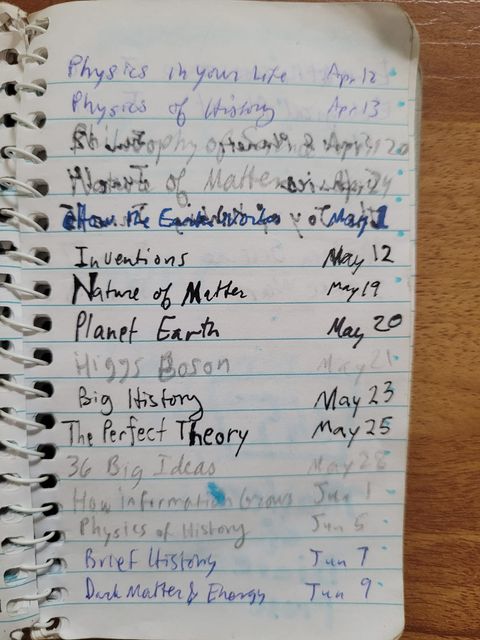 Physics in your Life Apr 12
Physics of History Apr 13
Philosophy of
of Matter
How the Earth Works May 1
Inventions May 12
Nature of Matter May 19
Planet Earth May 20
Higgs Boson May 21
Big History May 23
The Perfect Theory May 25
36 Big Ideas May 28
How information Grows Jun 1
Physics of History Jun 5
Brief History Jun 7
Dark Matter & Energy Jun 9